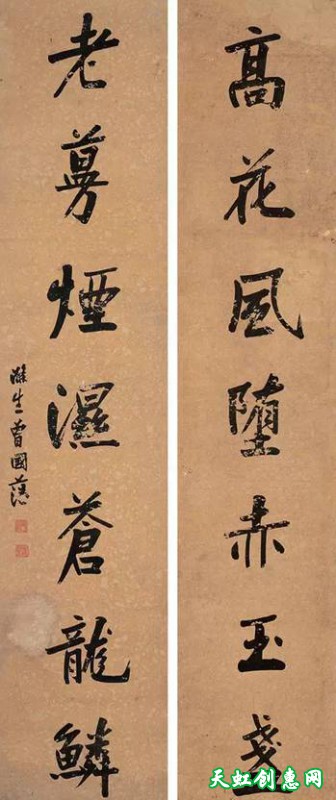 髙花風堕赤玉盞
老蔓煙濕蒼龍鱗
滌生曾國藩
天虹创意网